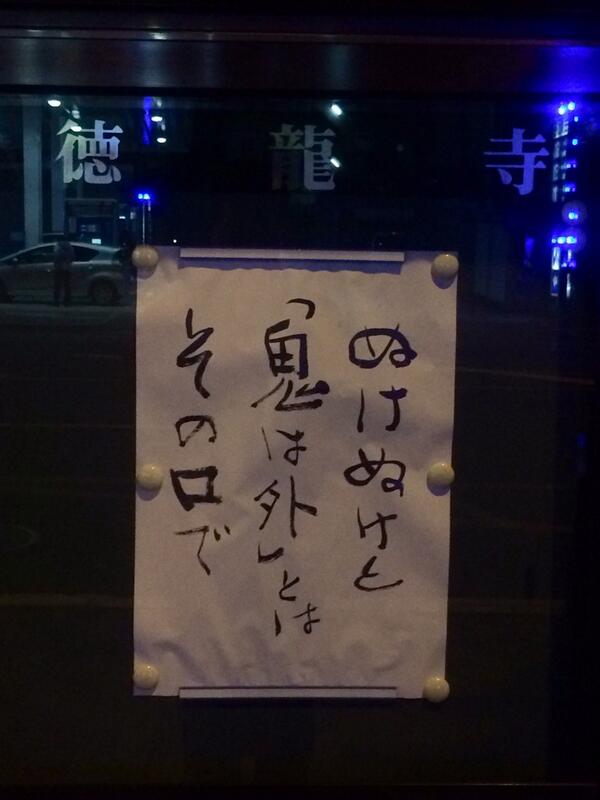 徳龍寺
ぬけぬけと
「鬼は外」とは
その口で